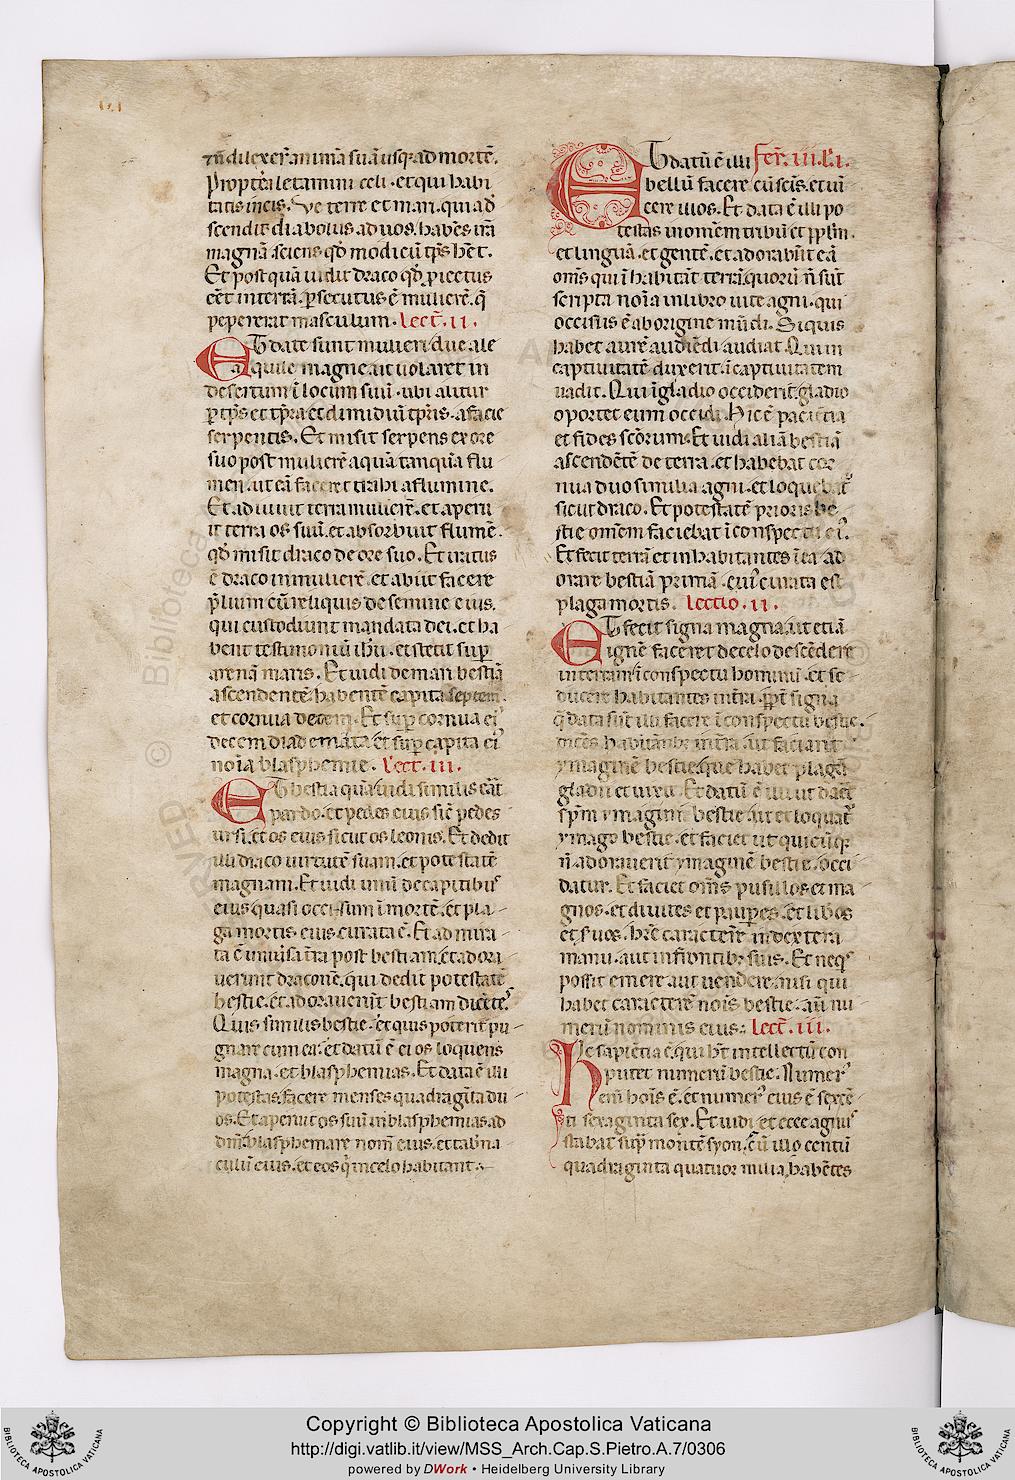 et nō dilexer̄t anīmā suā usq; ad mortē.
Propterea letamini celi. et qui habi
tatis in eis. Ve terre et mari. qui ad
scendit diabolus ad uos. habēs irā
magnā. sciens qđ modicū tp̄s het̄.
Et post quā uidit draco qđ piectus
eēt in terrā. psecutus ē mulierē. q̄
pepererat masculum. Lect̄. ii.
Et date sunt mulieri due ale
aquile magne aut uolaret in
desertum ī locum suū. ubi alitur
p tp̄s et tp̄ra et dimidiū tp̄ris. a facie
serpentis. Et misit serpens ex ore
suo post mulierē aquā tanquā flu
men. ut eā faceret trahi a flumine.
Et adiuuit terra mulierē. et aperu
it terra os suū. et absorbuit flumē.
qđ misit draco de ore suo. Et iratus
ē draco in mulierē. et abiit facere
p̄lium cū reliquis de semine eius.
qui custodiunt mandata dei. et ha
bent testimoniū ih̄u. et stetit sup
arenā maris. Et uidi de mari bestiā
ascendentē. habentē capita septem.
et cornua decem. Et sup cornua ei'
decem diademata. et sup capita ei'
noīa blasphemie. Lect̄. iii.
Et bestia quā uidi similis erāt
pardo. et pedes eius sic̄ pedes
ursi. et os eius sicut os leonis. Et dedit
illi draco uirtutē suam. et potestatē
magnam. Et uidi unū de capitibus
eius quasi occisum ī mortē. et pla
ga mortis eius curata ē. Et admira
ta ē uniūsa tr̄a post bestiam. et adora
uerunt draconē. qui dedit potestatē
bestie. et adorauerūt bestiam dicētes.
Quis similis bestie. et quis poterit pu
gnare cum ea. et datū ē ei os loquens
magna. et blasphemias. Et data ē illi
potestas facere menses quadragīta du
os. Et aperuit os suū in blasphemias ad
dn̄m. blasphemare nomē eius. et tab̄na
culū eius. et eos q̄ in celo habitant.
Et datū ē illi Fer̄. iii. L̄. i.
bellū facere cū scīs. et uī
cere illos. Et data ē illi po
testas in omēm tribū et pplm̄.
et linguā. et gentē. et adorabūt eā
om̄s qui īhabitāt terrā. quorū n̄ sūt
scripta noīa in libro uite agni. qui
occisus ē ab origine mūdi. Si quis
habet aurē audiēdi audiat. Qui in
captiuitatē duxerit. ī captiuitatem
uadit. Qui ī gladio occiderit. gladio
oportet eum occidi. Hic ē paciētia
et fides scōrum. Et uidi aliā bestiā
ascendētē de terra. et habebat cor
nua duo similia agni. et loquebat'
sicut draco. Et potestatē prioris be
stie omēm faciebat ī conspectu ei'.
Et fecit terrā et inhabitantes ī ea ad
orare bestiā primā. cui' curata est
plaga mortis. Lectio. ii.
Et fecit signa magna. ut etiā
ignē faceret de celo descēdere
in terram ī conspectu hominū. et se
ducere habitantes in tr̄a. ppt̄ signa
q̄ data sūt illi facere ī conspectu bestie.
dicēs habitantib; in tr̄a. ut faciant
ymaginē bestie. que habet plagā
gladii et uixit. Et datū ē illi ut daēt
spm̄ ymagini bestie. ut et loquat'
ymago bestie. et faciet ut quicūq;
n̄ adorauerit ymaginē bestie. occi
datur. Et faciet om̄s pusillos et ma
gnos. et diuites et paupes. et lib̄os
et s̄uos. hr̄e caracterē in dextera
manu. aut in frontibȝ suis. Et neq;
possit emere aut uendere. nisi qui
habet caracterē nois bestie. aū nu
merū nominis eius. Lect̄. iii.
Hic sapiētia ē. qui ht̄ intellectū con
putet numerū bestie. Numer'
eni hoīs ē. et numer' eius ē sexcē
ti sexaginta sex. Et uidi et ecce agnus
stabat sup montē syon. et cū illo centū
quadraginta quatuor milia. habētes
Copyright © Biblioteca Apostolica Vaticana
http://digi.vatlib.it/view/MSS_Arch.Cap.S.Pietro.A.7/0306
powered by DWork • Heidelberg University Library
BIBLIOTECA APOSTOLICA VATICANA
BIBLIOTECA APOSTOLICA VATICANA